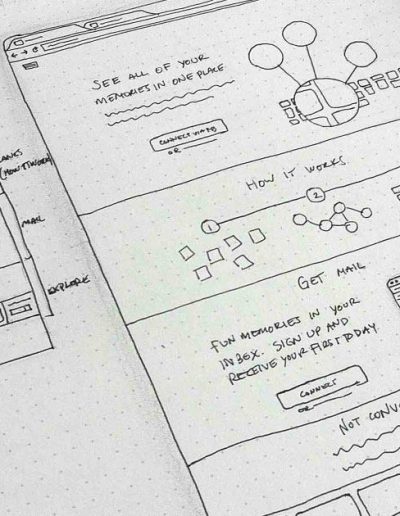 SEE ALL OF YOUR
MEMORIES IN ONE PLACE
CONNECT VIA FB
OR
HOW IT WORKS
1
2
(HOW IT WORKS)
MAIL
EXPLORE
GET MAIL
FUN MEMORIES IN YOUR
INBOX. SIGN UP AND
RECEIVE YOUR FIRST TODAY
CONNECT
OR
NOT CONV